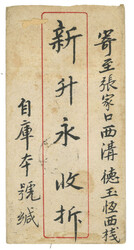 寄至張家口西溝德玉恆西栈
新升永收拆
自庫本號缄